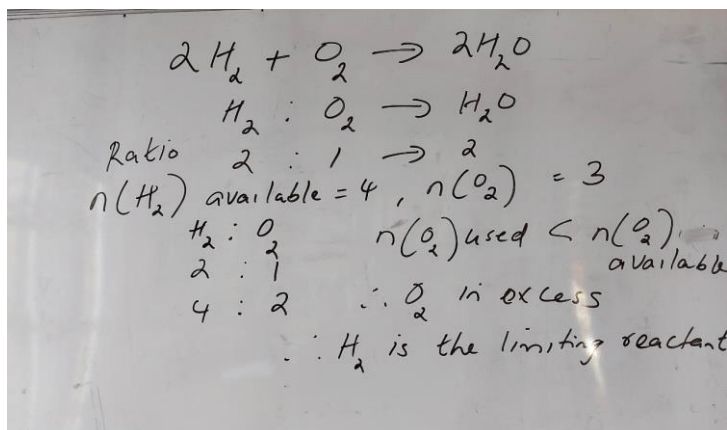 2H₂ + O₂ → 2H₂O
H₂ : O₂ → H₂O
Ratio 2 : 1 → 2
n(H₂) available = 4, n(O₂) = 3
H₂ : O₂ n(O₂) used < n(O₂) available
2 : 1
4 : 2 ∴ O₂ in excess
∴ H₂ is the limiting reactant